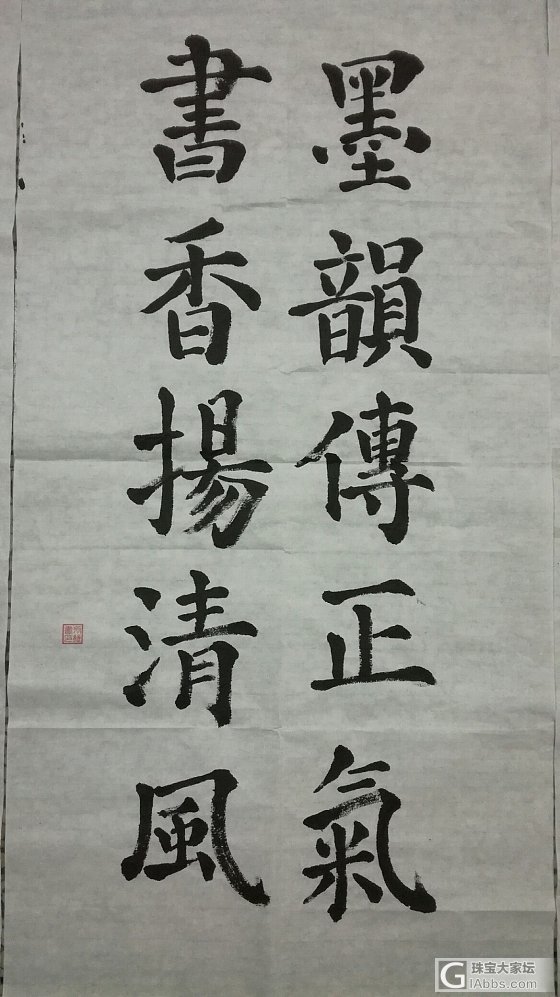 墨韻傳正氣
書香揚清風
G 珠宝大家坛
GIAbbs.com